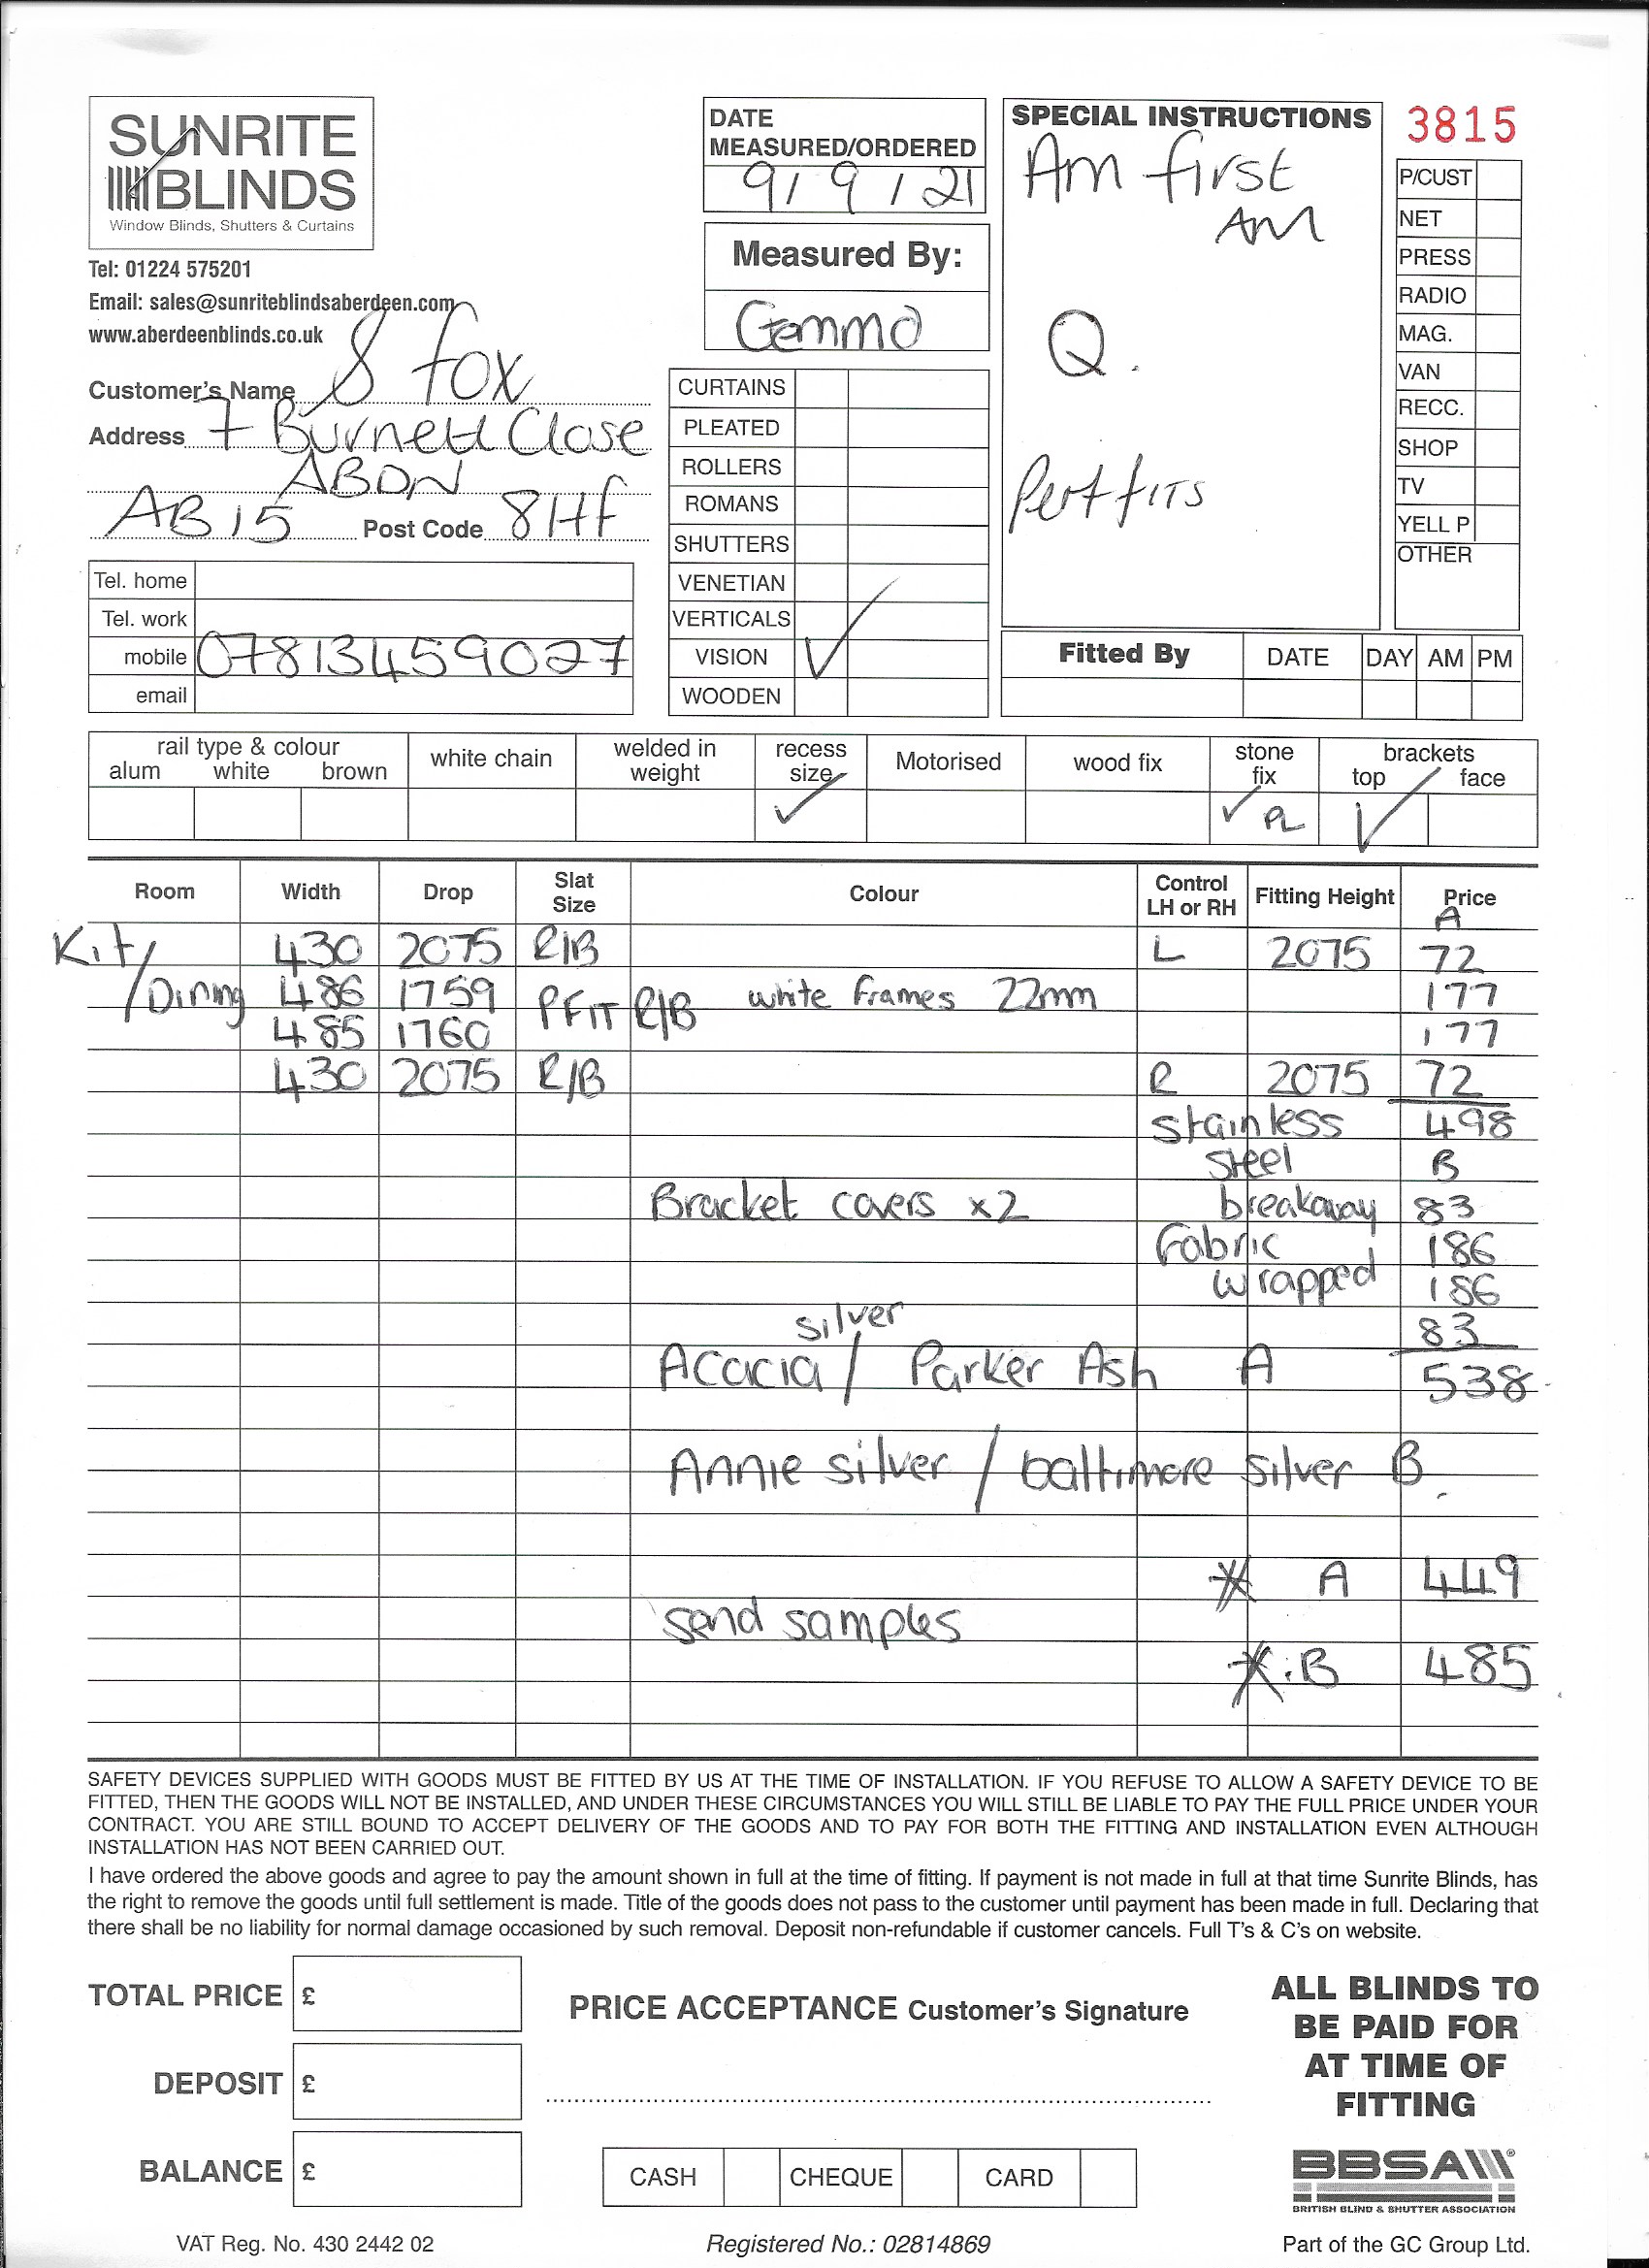 SUNRITE
BLINDS
Window Blinds, Shutters & Curtains
Tel: 01224 575201
Email: sales@sunriteblindsaberdeen.com
www.aberdeenblinds.co.uk
Customer's Name S Fox
Address 7 Burnett Close
ABDN
AB15 Post Code 8HF
Tel. home
Tel. work
mobile 07813459027
email
DATE
MEASURED/ORDERED
9/9/21
Measured By:
Gemma
CURTAINS
PLEATED
ROLLERS
ROMANS
SHUTTERS
VENETIAN
VERTICALS
VISION ✓
WOODEN
SPECIAL INSTRUCTIONS
Am first
AM
Q.
Perf fits
3815
P/CUST
NET
PRESS
RADIO
MAG.
VAN
RECC.
SHOP
TV
YELL P
OTHER
Fitted By DATE DAY AM PM
rail type & colour
alum white brown
white chain
welded in
weight
recess
size ✓
Motorised
wood fix
stone
fix ✓ PL
brackets
top ✓ face
Room Width Drop Slat Size Colour Control LH or RH Fitting Height Price
A
Kit/ 430 2075 R/B L 2075 72
/Dining 486 1759 PFIT R/B white frames 22mm 177
485 1760 177
430 2075 R/B R 2075 72
stainless 498
steel B
Bracket covers x2 breakaway 83
Fabric 186
wrapped 186
silver 83
Acacia / Parker Ash A 538
Annie silver / baltimore silver B
* A 449
send samples
* B 485
SAFETY DEVICES SUPPLIED WITH GOODS MUST BE FITTED BY US AT THE TIME OF INSTALLATION. IF YOU REFUSE TO ALLOW A SAFETY DEVICE TO BE
FITTED, THEN THE GOODS WILL NOT BE INSTALLED, AND UNDER THESE CIRCUMSTANCES YOU WILL STILL BE LIABLE TO PAY THE FULL PRICE UNDER YOUR
CONTRACT. YOU ARE STILL BOUND TO ACCEPT DELIVERY OF THE GOODS AND TO PAY FOR BOTH THE FITTING AND INSTALLATION EVEN ALTHOUGH
INSTALLATION HAS NOT BEEN CARRIED OUT.
I have ordered the above goods and agree to pay the amount shown in full at the time of fitting. If payment is not made in full at that time Sunrite Blinds, has
the right to remove the goods until full settlement is made. Title of the goods does not pass to the customer until payment has been made in full. Declaring that
there shall be no liability for normal damage occasioned by such removal. Deposit non-refundable if customer cancels. Full T's & C's on website.
TOTAL PRICE £
DEPOSIT £
BALANCE £
PRICE ACCEPTANCE Customer's Signature
CASH CHEQUE CARD
ALL BLINDS TO
BE PAID FOR
AT TIME OF
FITTING
BBSA
BRITISH BLIND & SHUTTER ASSOCIATION
VAT Reg. No. 430 2442 02
Registered No.: 02814869
Part of the GC Group Ltd.